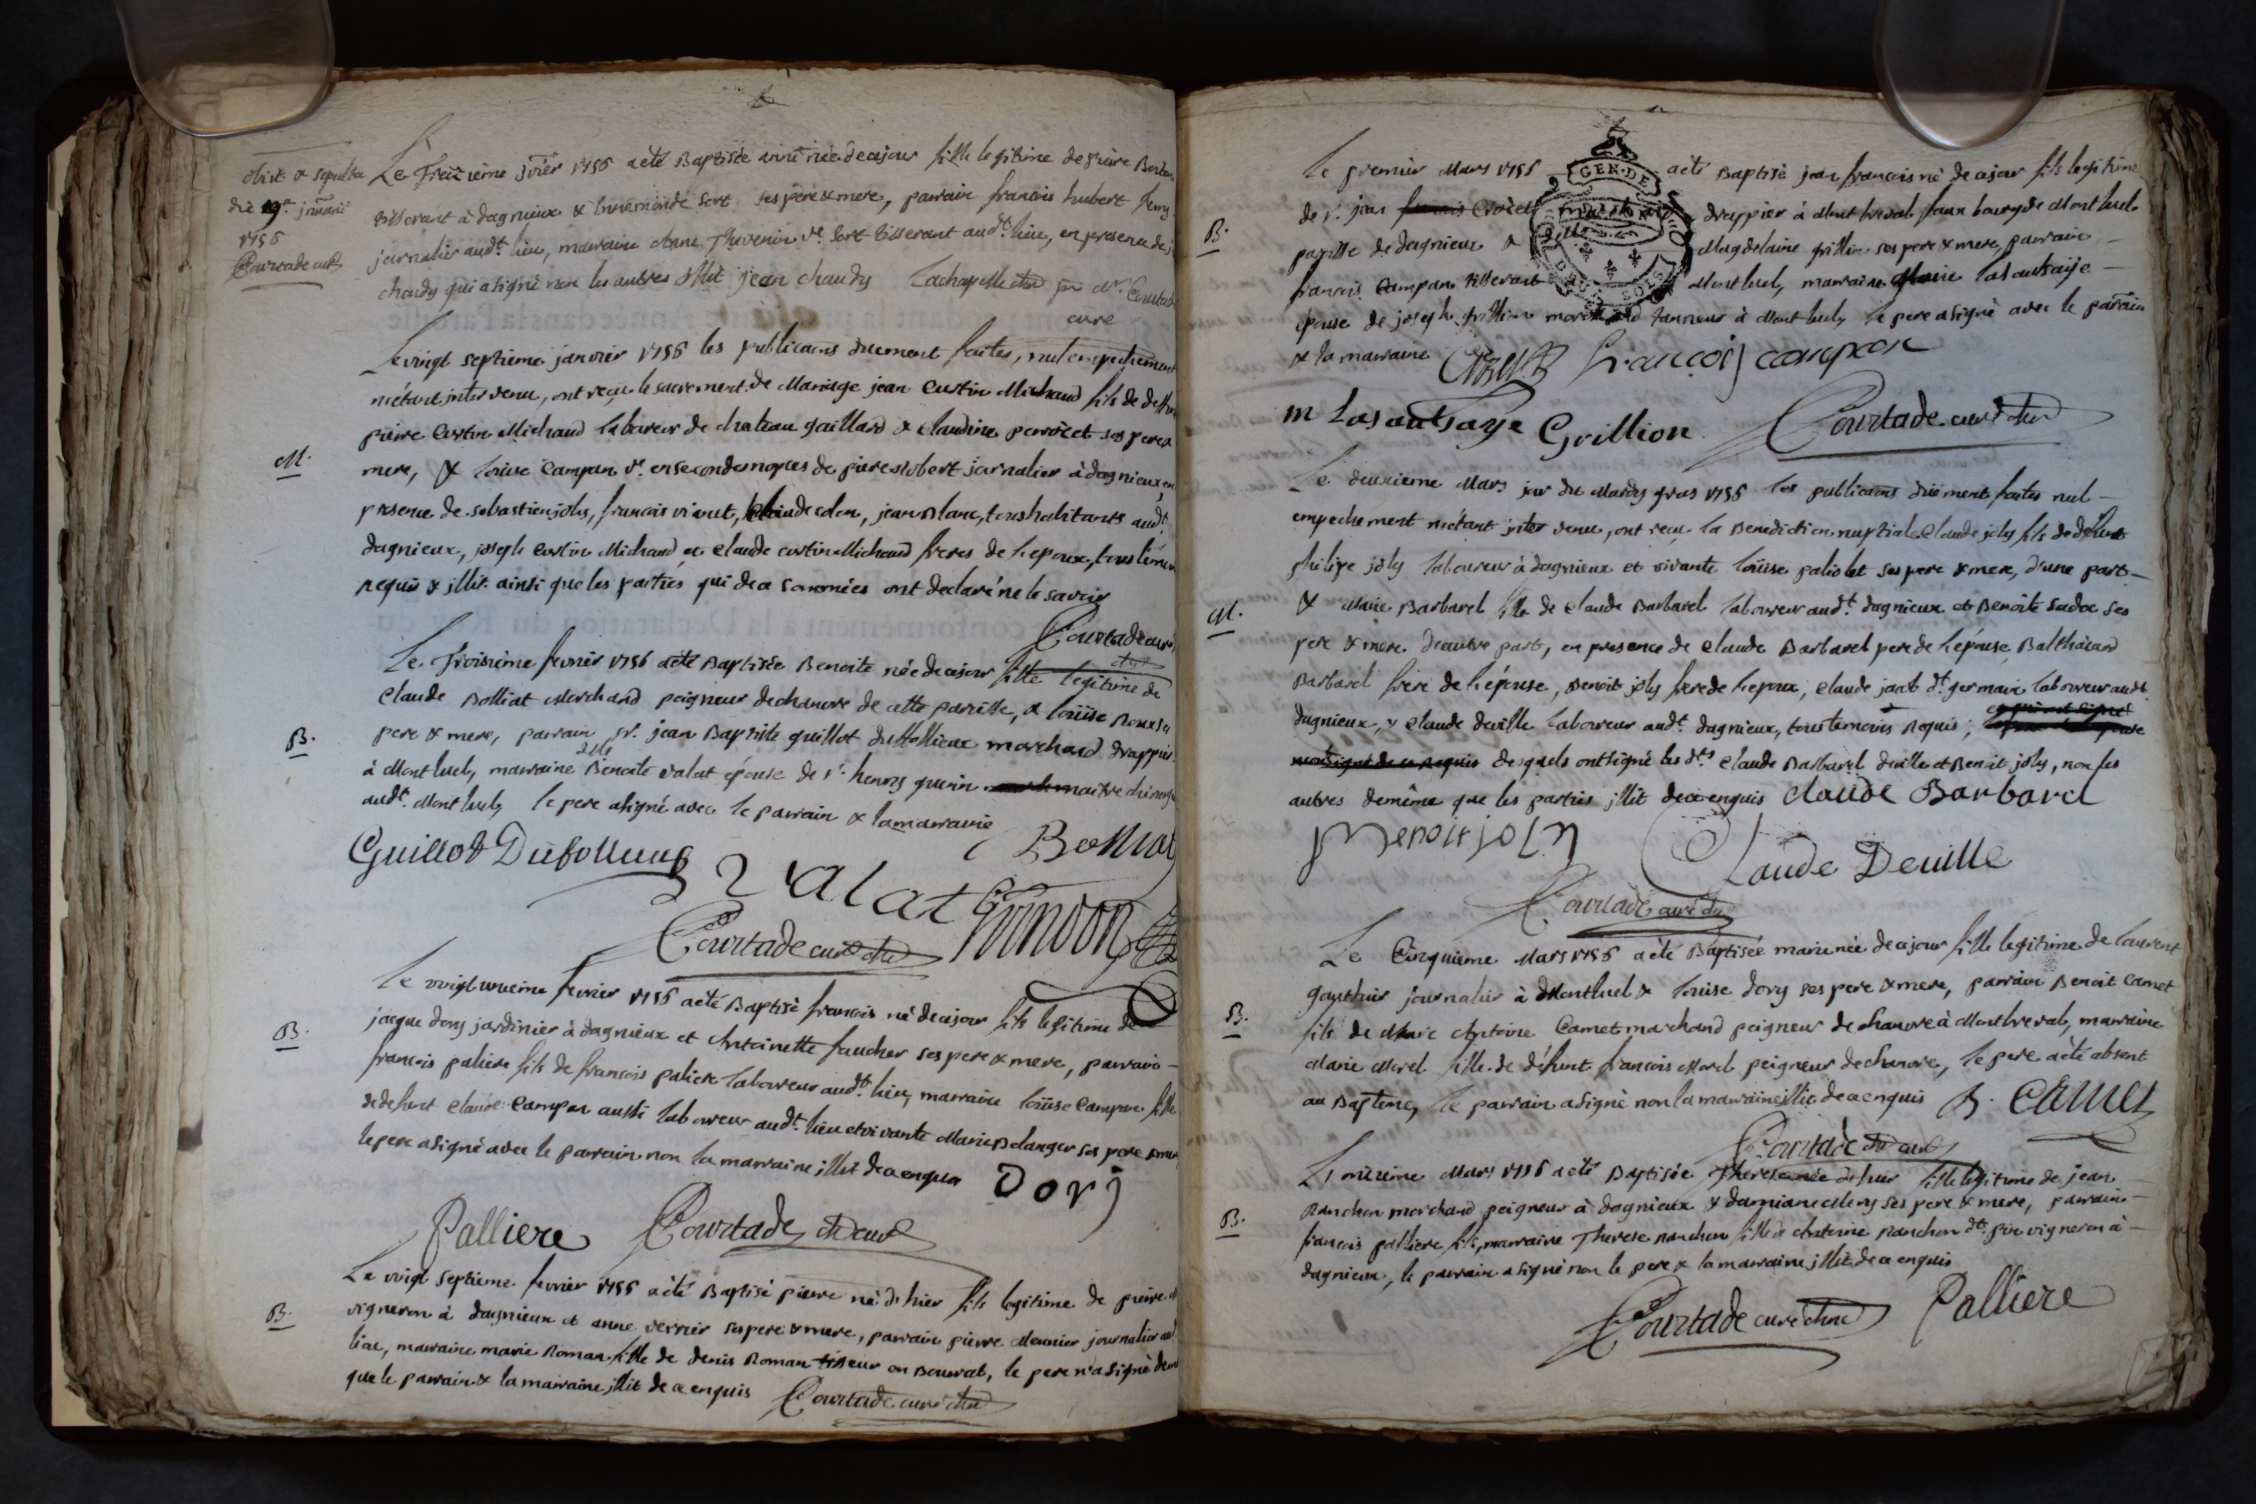 obiit & sepulta
die 19a januarii
1756
Courtade curé
Le Treizieme jvier 1756 a été Baptisée anne née de ce jour fille legitime de pierre
tisserant à dagnieux & Ennemonde sort ses pere & mere, parrain francois hubert
journalier audt. lieu, marraine Anne Thevenin ve. sort tisserant audt. lieu, en presence de j
chaudy qui a signé non les autres illit jean chaudy Lachapelle pr Mr. Courtade
curé
M.
Le vingt septieme janvier 1756 les publicaons düement faites, nul empechement
n'étant inter venu, ont reçu le sacrement de Mariage jean Curtin Michaud fils de
pierre Curtin Michaud laboureur de chateau gaillard & Claudine perroset ses pere &
mere, & loüise Campan ve. en secondes noces de pierre Robert journalier à dagnieux, en
presence de sebastien joly, francois vivant, Claude colon, jean Blanc, tous habitants audt.
dagnieux, joseph Curtin Michaud et Claude curtin Michaud freres de l'epoux, tous temoins
requis & illit. ainsi que les parties, qui de ce sommées ont declaré ne le savoir
Courtade curé
B.
Le Troisieme fevrier 1756 a été Baptisée Benoite née de ce jour fille legitime de
Claude Bolliat Marchand peigneur de chanvre de cette parroisse, & loüise Roux ses
pere & mere, parrain sr. jean Baptiste guillot Dufollieux marchand drappier
à Mont luel, marraine dlle Benoite valat épouse de sr. henry guerin maitre chirurgien
audt. Mont luel, le pere a signé avec le parrain & la marraine
Bolliat
Guillot Dufollieux Valat
Courtade curé
B.
Le vingt unieme fevrier 1756 a été Baptisé francois né de ce jour fils legitime de
jacque dory jardinier à dagnieux et Antoinette faucher ses pere & mere, parrain
francois paliere fils de francois paliere laboureur audt. lieu, marraine loüise Campan fille
de defunt Claude Campan aussi laboureur audt. lieu et vivante Marie Belanger ses pere & mere
le pere a signé avec le parrain non la marraine illit de ce enquise Dory
Palliere Courtade curé
B.
Le vingt septieme fevrier 1756 a été Baptisé pierre né d'hier fils legitime de pierre
vigneron à dagnieux et anne verrier ses pere & mere, parrain pierre Meunier journalier audt
lieu, marraine marie Roman fille de denis Roman tisseur en Beauvat, le pere n'a signé de meme
que le parrain & la marraine illit de ce enquis Courtade curé
B.
GEN. DE
Le premier Mars 1756 a été Baptisé jean francois né de ce jour fils legitime
de sr. jean Croset drappier à Mont breval faux bourg de Mont luel
parroisse de dagnieux & Magdelaine grillion ses pere & mere, parrain
francois Campan tisserant Mont luel, marraine lasautsaye
épouse de joseph grillion marchand tanneur à Mont luel, le pere a signé avec le parrain
& la marraine Croset françois campan
m Lasautsaye Grillion Courtade curé
M.
Le deuxieme Mars jour du Mardy gras 1756 les publicaons düement faites nul
empechement n'étant inter venu, ont reçu la Benediction nuptiale Claude joly fils de défunt
philipe joly laboureur à dagnieux et vivante loüise paliolet ses pere & mere, d'une part
& Marie Barbarel fille de Claude Barbarel laboureur audt. dagnieux et Benoite sadoc ses
pere & mere d'autre part, en presence de Claude Barbarel pere de l'épouse, Balthazard
Barbarel frere de l'épouse, Benoit joly frere de l'epoux, Claude jaat dt. germain laboureur audt.
dagnieux, & Claude deville laboureur audt. dagnieux, tous temoins requis;
desquels ont signé les dts Claude Barbarel deville et Benoit joly, non les
autres de même que les parties illit de ce enquis Claude Barbarel
Benoit joly Claude Deville
Courtade curé
B.
Le Cinquieme Mars 1756 a été Baptisée marie née de ce jour fille legitime de laurent
gauthier journalier à Montluel & louise dory ses pere & mere, parrain Benoit Camet
fils de Marc Antoine Camet marchand peigneur de chanvre à Montbreval, marraine
Marie Morel fille de défunt francois Morel peigneur de chanvre, le pere a été absent
au Baptême, le parrain a signé non la marraine illit de ce enquis B. Camet
Courtade curé
B.
Le onzieme Mars 1756 a été Baptisée Therese née d'hier fille legitime de jean
Ranchon marchand peigneur à dagnieux & damiane Mery ses pere & mere, parrain
francois palliere fils, marraine Therese ranchon fille de Antoine Ranchon dt. vigneron à
dagnieux, le parrain a signé non le pere & la marraine illit de ce enquis
Courtade curé Palliere